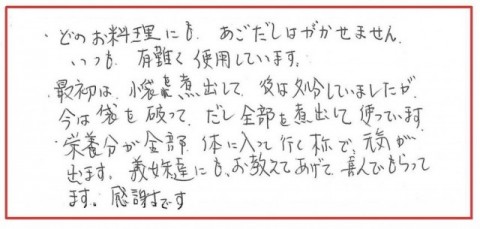 ・どのお料理にも、あごだしはがかせません。
いつも、有難く使用しています。
・最初は、小袋煮出して、後は処分していましたが、
今は袋を破って、だし全部を煮出して使っています
・栄養分が全部体に入って行く様で、元気が
出ます。義姉達にも、お教えてあげて、喜んでもらって
ます。感謝です